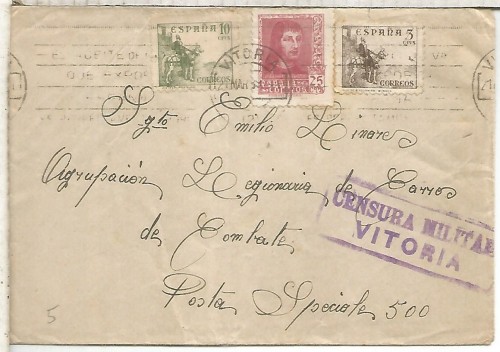 ESPAÑA 10 CTS
CORREOS
25
ESPAÑA 5 CTS
CORREOS
VITORIA
Sgto Emilio Linares
Agrupación Legionaria de Carros
de Combate
Posta Speciale 500
CENSURA MILITAR
VITORIA
5